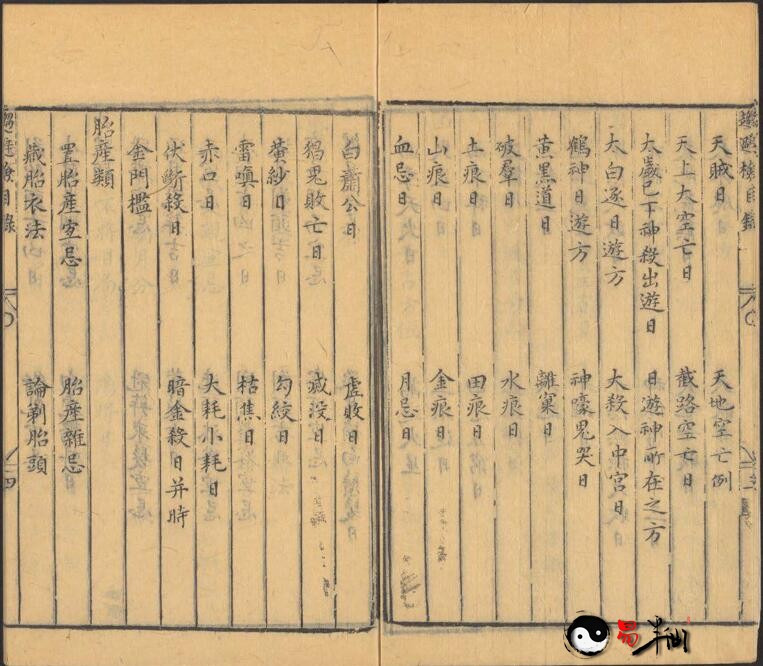 天賊日 天地空亡例
天上大空亡日 截路空亡日
太歲已下神殺出遊日 日遊神所在之方
太白逐日遊方 大殺入中宮日
鶴神日遊方 神嚎鬼哭日
黃黑道日 離窠日
破羣日 水痕日
土痕日 田痕日
山痕日 金痕日
血忌日 月忌日
白虎公日 虛敗日
猖鬼敗亡日 滅没日
黃紗日 勾絞日
雷嗔日 枯焦日
赤口日 大耗小耗日
伏斷殺日 暗金殺日并時
金門檻日
胎產類
置胎產室忌 胎產雜忌
藏胎衣法 論剃胎頭